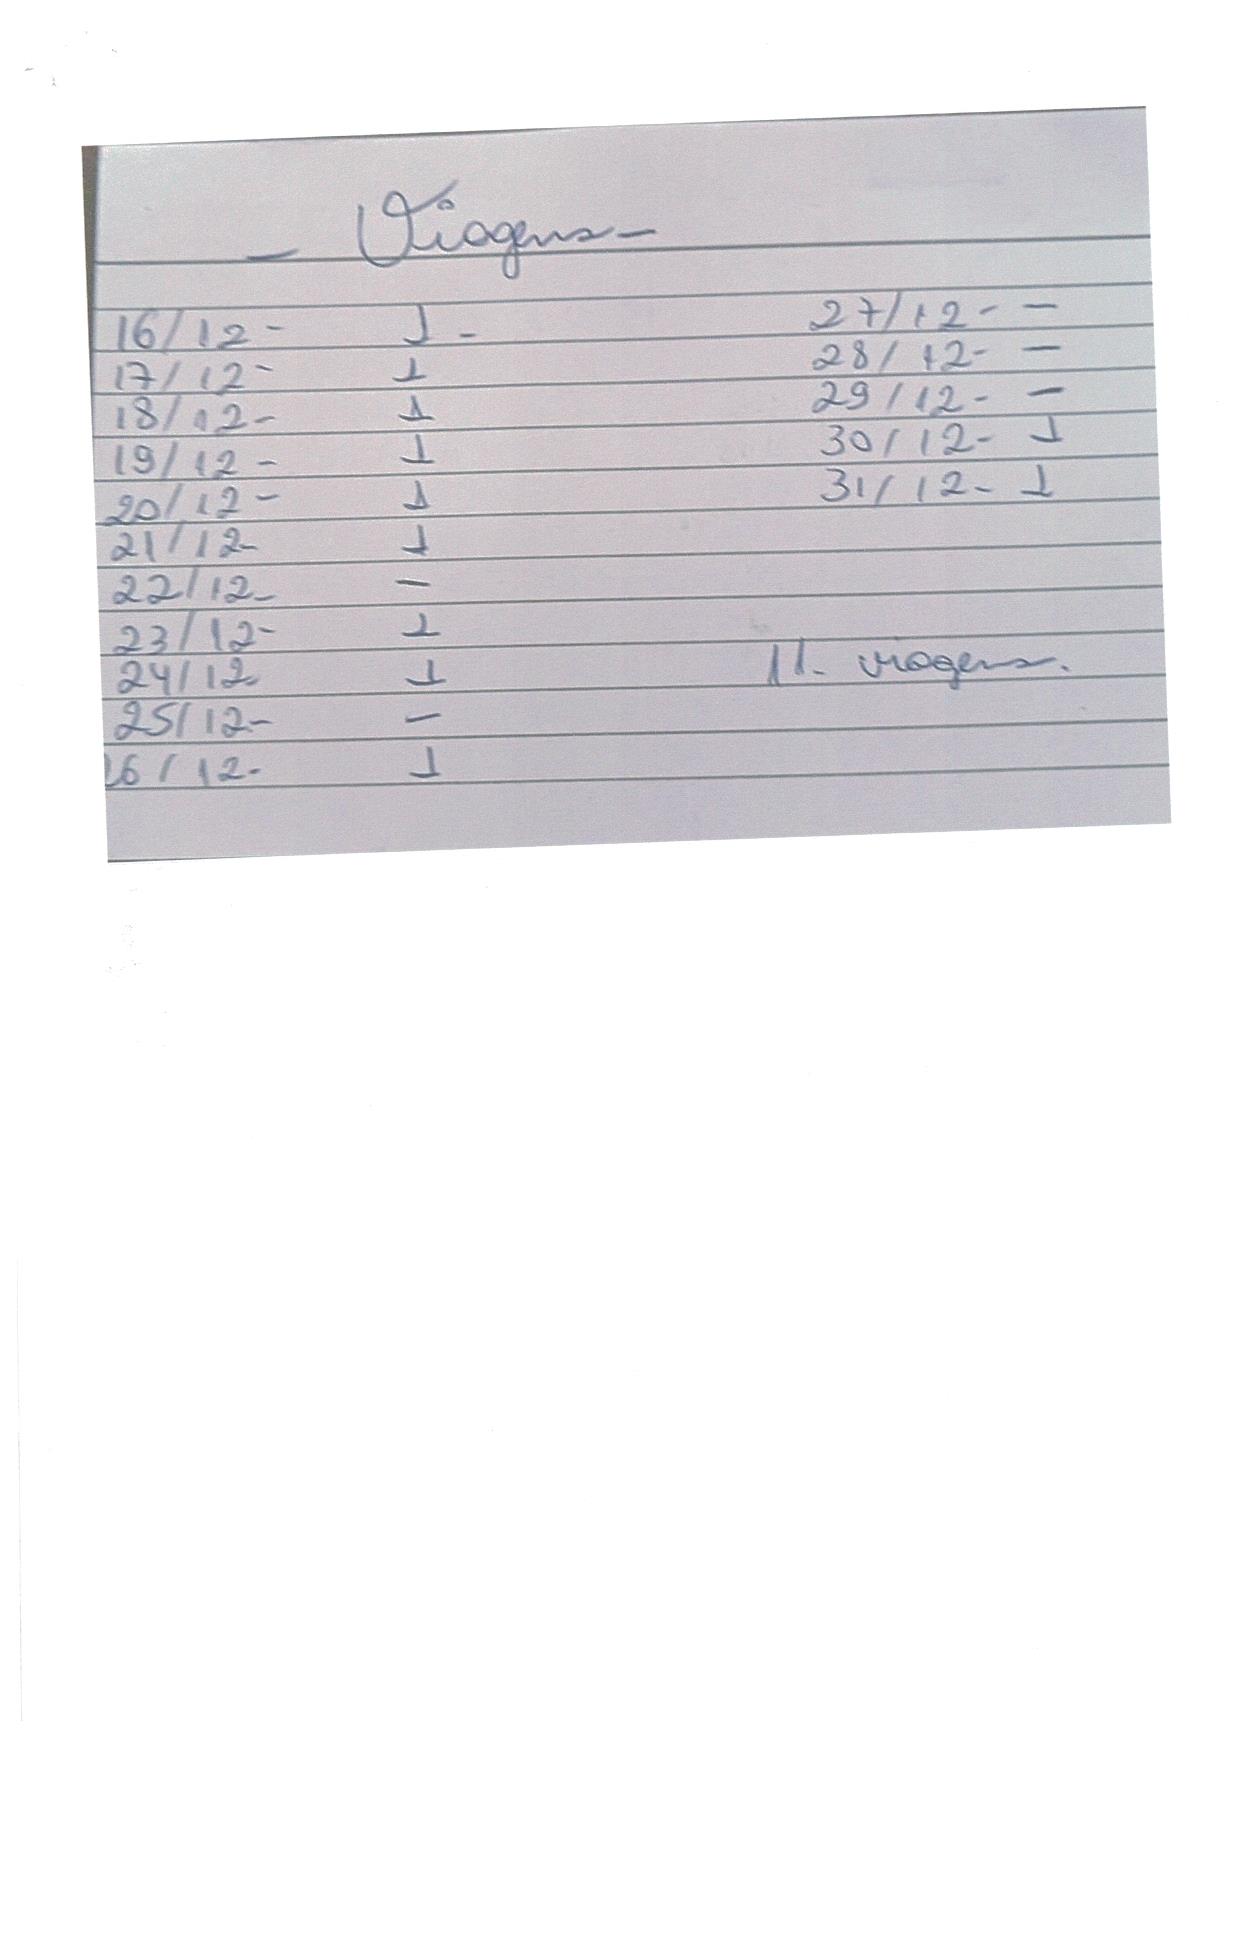 - Viagens -
16/12- 1-
17/12- 1
18/12- 1
19/12- 1
20/12- 1
21/12- 1
22/12- -
23/12- 1
24/12 1
25/12- -
26/12- 1
27/12- -
28/12- -
29/12- -
30/12- 1
31/12- 1
11- viagens.